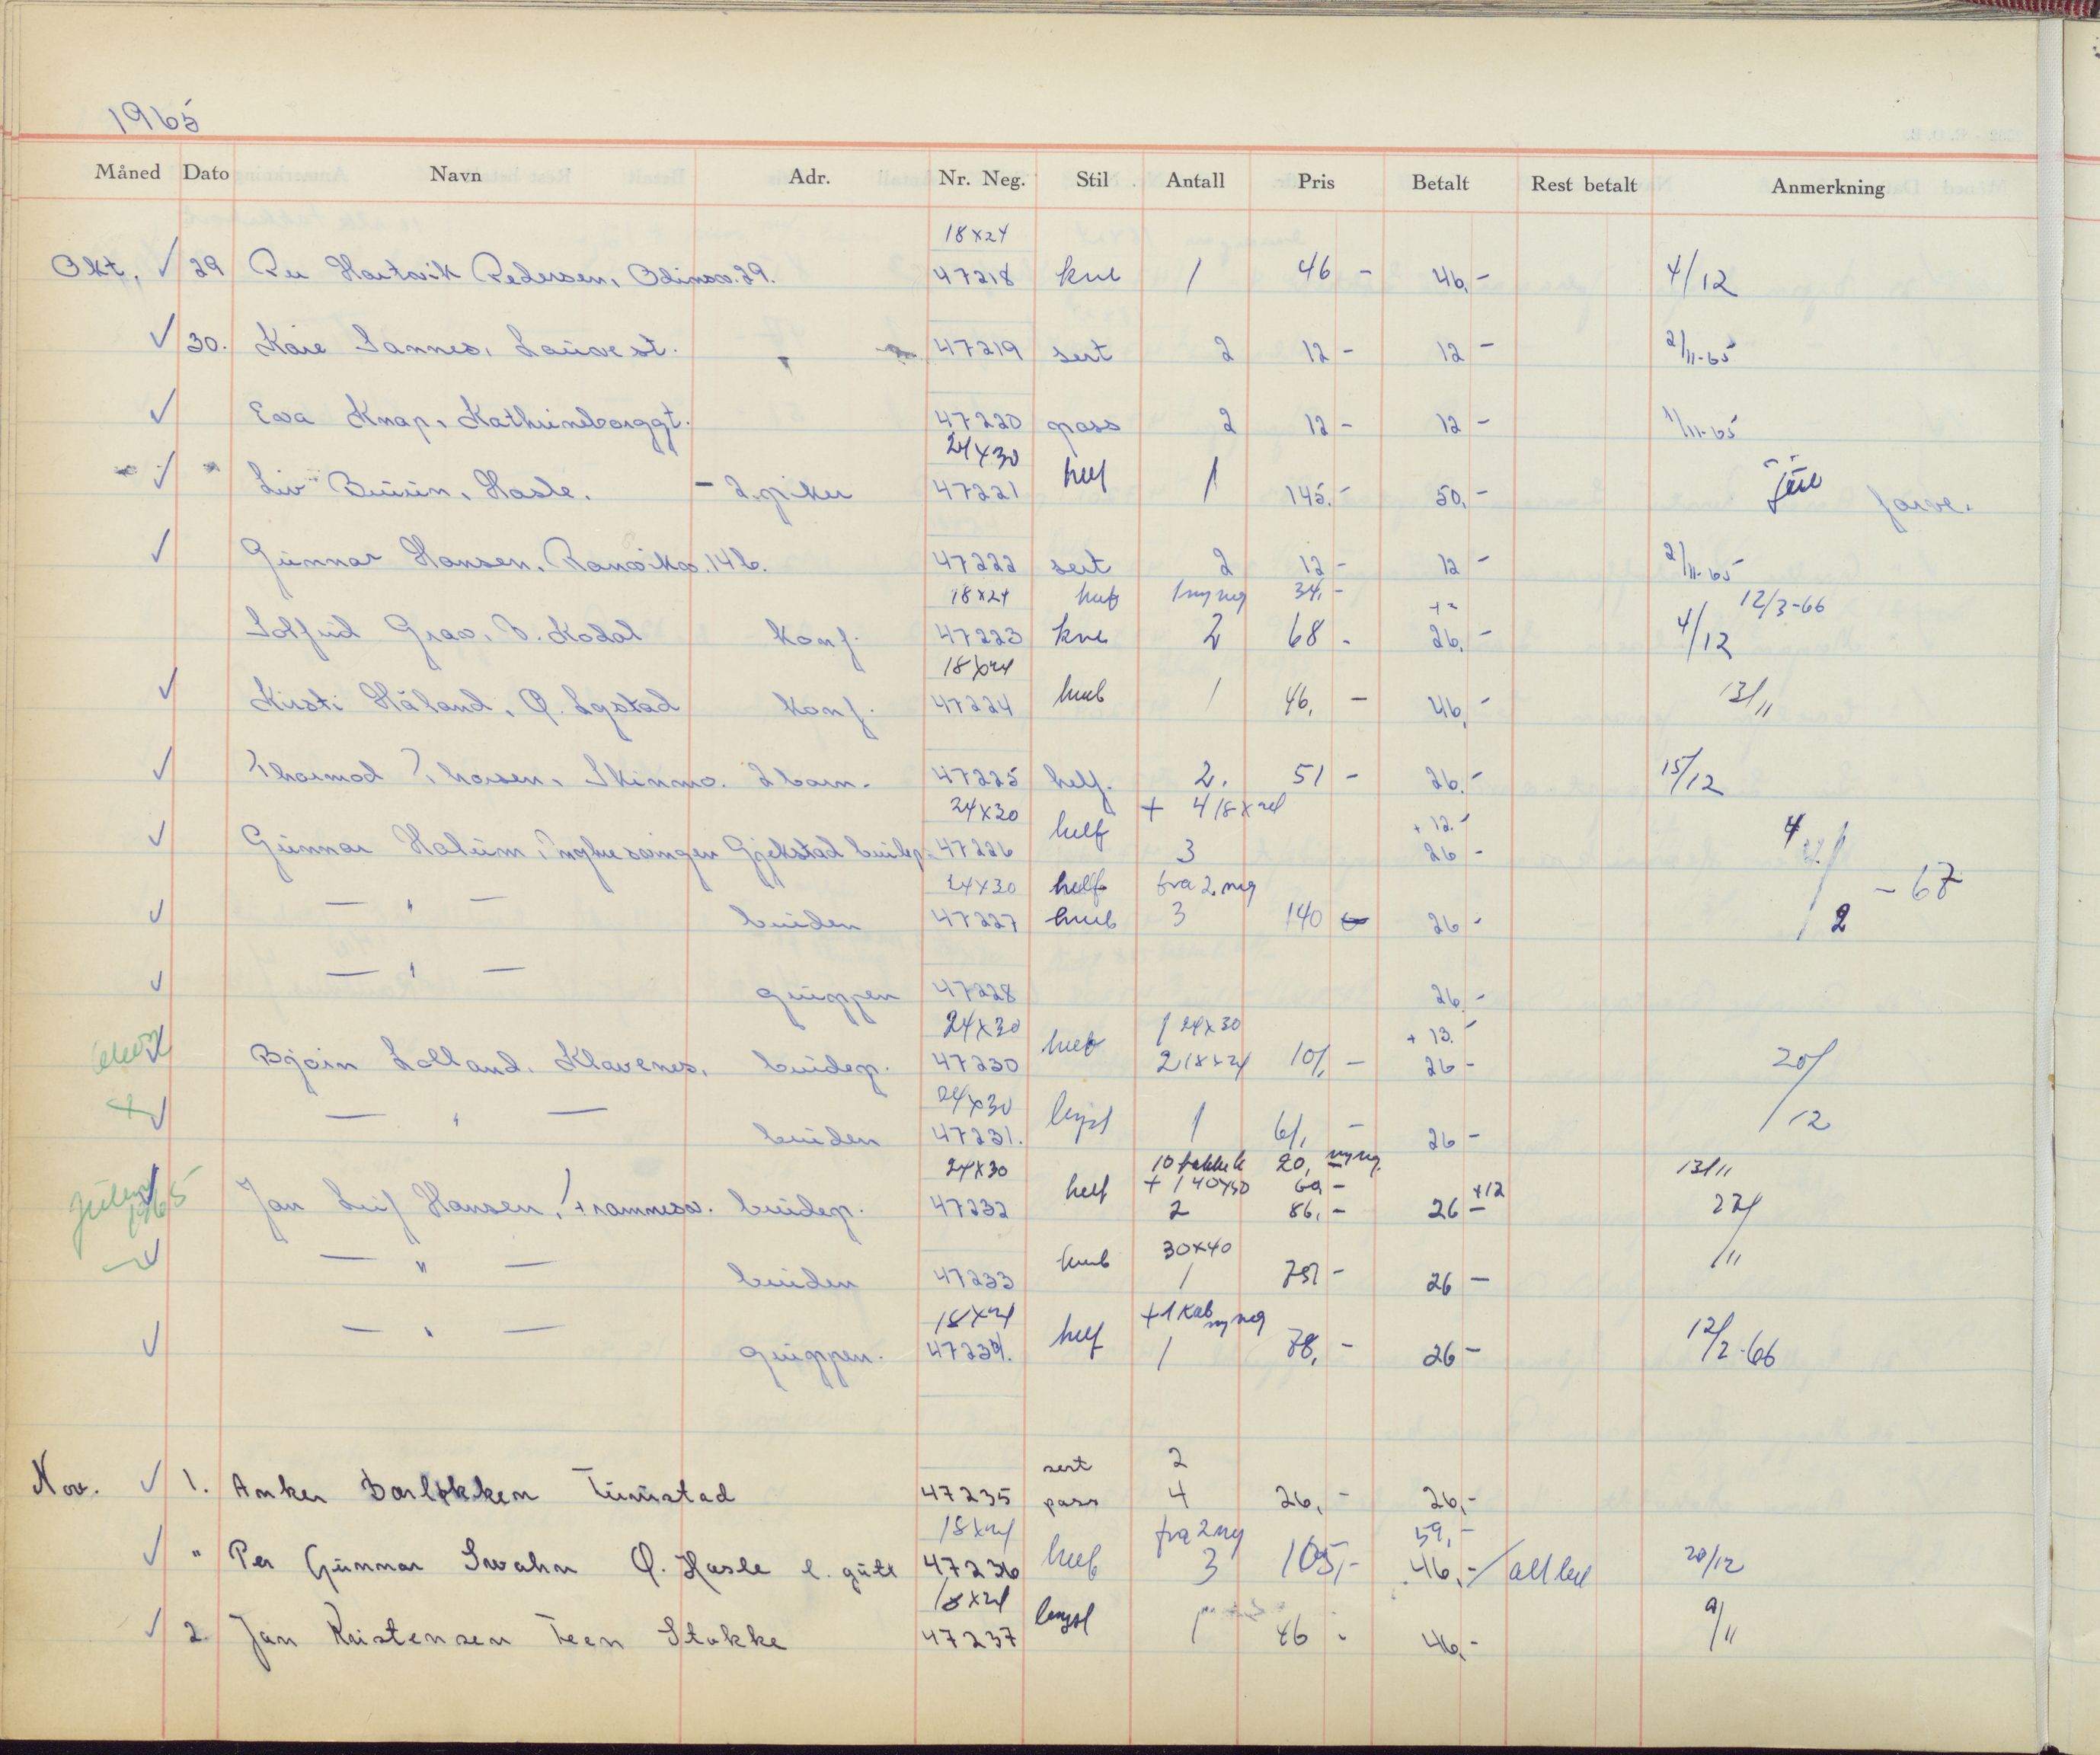 1965
Måned Dato Navn Adr. Nr. Neg. Stil Antall Pris Betalt Rest betalt Anmerkning
18x24
Okt. ✓ 29 Per Hartvik Pedersen, Odinsv. 29. 47218 kne 1 46 - 46,- 4/12
✓ 30. Kåre Sannes, Lauvest. 47219 sert 2 12 - 12 - 2/11-65
✓ Eva Knap, Kathrineborggt. 47220 pass 2 12 - 12 - 1/11-65
24x30
✓ " Liv Buün, Hasle. - 2 piker 47221 helf 1 145.- 50,- farve.
✓ Gunnar Hansen, Ranvikv. 14b. 47222 sert 2 12 - 12 - 2/11-65
18x24 1 ny neg 34,- 12/3-66
Solfrid Grav, Ø. Kodal konf. 47223 kne 2 68 - 26,- 4/12
18x24
✓ Kirsti Håland, Ø. Lystad konf. 47224 1 46,- 46,- 13/11
✓ Thormod Thorsen, Skinmo. 2 barn. 47225 helf. 2. 51 - 26.- 15/12
24x30 + 4 18x24 + 12.-
✓ Gunnar Halum, Gjekstad brudep. 47226 helf 3 26 - 4
24x30 helf fra 2 neg - 67
✓ — " — bruden 47227 3 140 26 - 2
✓ — " — gruppen 47228 26,-
24x30 1 24x30 + 13.-
✓ Bjørn Lolland, Klavenes, brudep. 47230 2 18x24 101,- 26 - 20/12
24x30
✓ — " — bruden 47231. 1 61,- 26 -
24x30 10 takkek 20, ny neg 13/11
+ 1 40x50 60 - +12
Julen 1965 ✓ Jan Leif Hansen, Framnesv. brudep. 47232 helf 2 86,- 26 - 22/11
30x40
✓ — " — bruden 47233 1 75,- 26 -
18x24 + 1 kab ny neg
✓ — " — gruppen. 47234. helf 1 78,- 26 - 12/2-66
sert 2
Nov. ✓ 1. Anker Barløkken Turistad 47235 pass 4 26,- 26,-
18x24 fra 2 neg 59,-
✓ " Per Gunnar Swahn Ø. Hasle l. gutt 47236 3 105,- 46,- / alt bet 20/12
18x24
✓ 2. Jan Kristensen Teen Stokke 47237 1 46 - 46,- 9/11